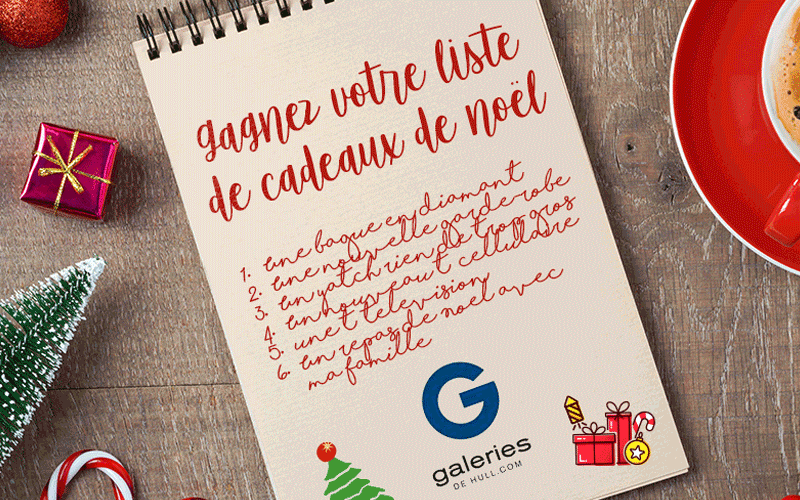 gagnez votre liste
de cadeaux de noël
1. une bague en diamant
2. une nouvelle garde-robe
3. un yatch rien de trop gros
4. un nouveau t cellulaire
5. une t télévision
6. un repas de noël avec
ma famille
G
galeries
DE HULL.COM